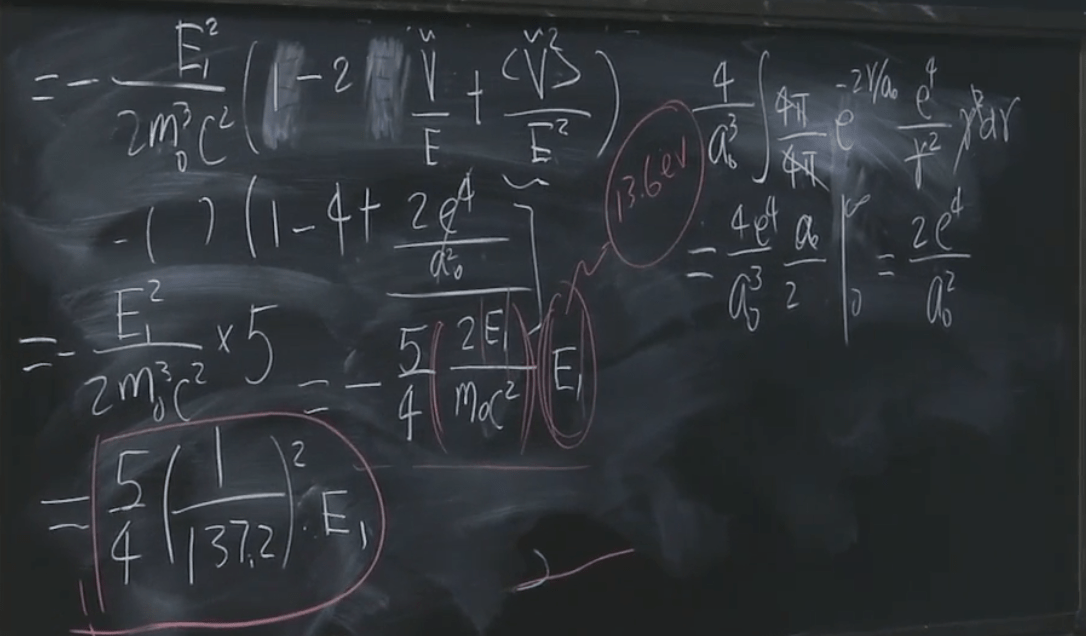 = - E₁² / 2m₀³c² (1 - 2 V̌/E + ⟨V̌²⟩/E²)
- ( ) (1 - 4 + 2e⁴/a₀² / E₁
= - E₁² / 2m₀³c² × 5 = - 5/4 (2|E₁| / m₀c²) E₁
= 5/4 (1/137.2)² · E₁
13.6 eV
4/a₀³ ∫ 4π/4π e^(-2r/a₀) e⁴/r² r² dr
= 4e⁴/a₀³ a₀/2 |₀^∞ = 2e⁴/a₀²